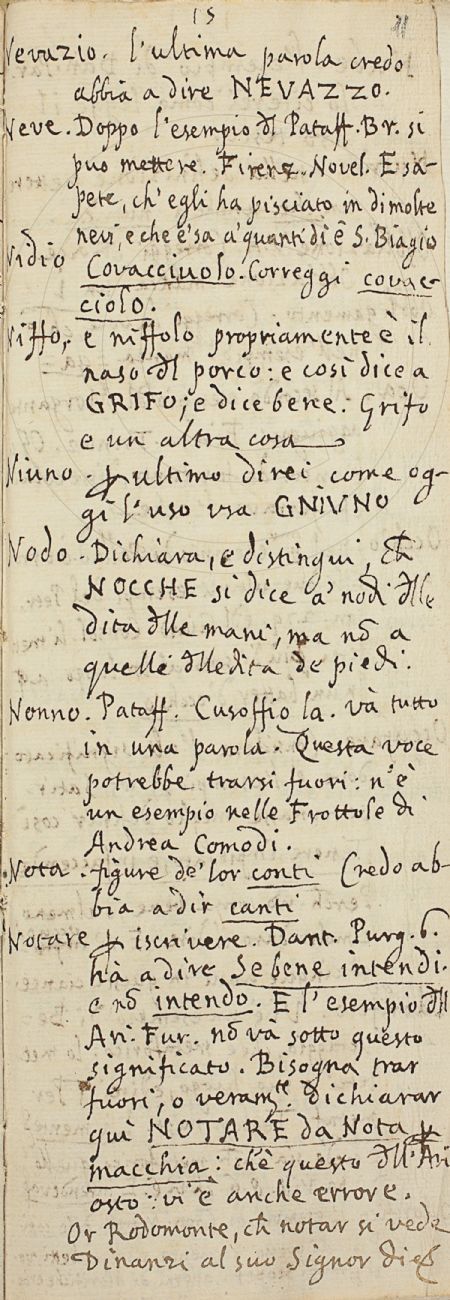 15
11
Nevazio. l'ultima parola credo
abbia a dire NEVAZZO.
Neve. Doppo l'esempio dl Pataff. Br. si
può mettere. Firenz. Novel. E sa-
pete, ch'egli ha pisciato in dimolte
nevi, e che e' sa a' quanti dì è S. Biagio
Nidio Covacciuolo. Correggi covac-
ciolo.
Niffo, e niffolo propriamente è il
naso dl porco: e così dice a
GRIFO; e dice bene. Grifo
e un altra cosa
Niuno. ꝑ ultimo direi come og-
gi l'uso usa GNIUNO
Nodo. Dichiara, e distingui, ch
NOCCHE si dice a' nodi dlle
dita dlle mani, ma nō a
quelle dlle dita de piedi.
Nonno. Pataff. Cusoffiola. và tutto
in una parola. Questa voce
potrebbe trarsi fuori: n' è
un esempio nelle Frottole di
Andrea Comodi.
Nota. figure de' lor conti Credo ab-
bia a dir canti
Notare ꝑ iscrivere. Dant. Purg. 6.
hà a dire Se bene intendi.
e nō intendo. E l'esempio dll
Ari. Fur. nō và sotto questo
significato. Bisogna trar
fuori, o veramte. dichiarar
quì NOTARE da Nota ꝑ
macchia: chè questo dll'Ari
osto: vi è anche errore.
Or Rodomonte, ch notar si vede
Dinanzi al suo Signor